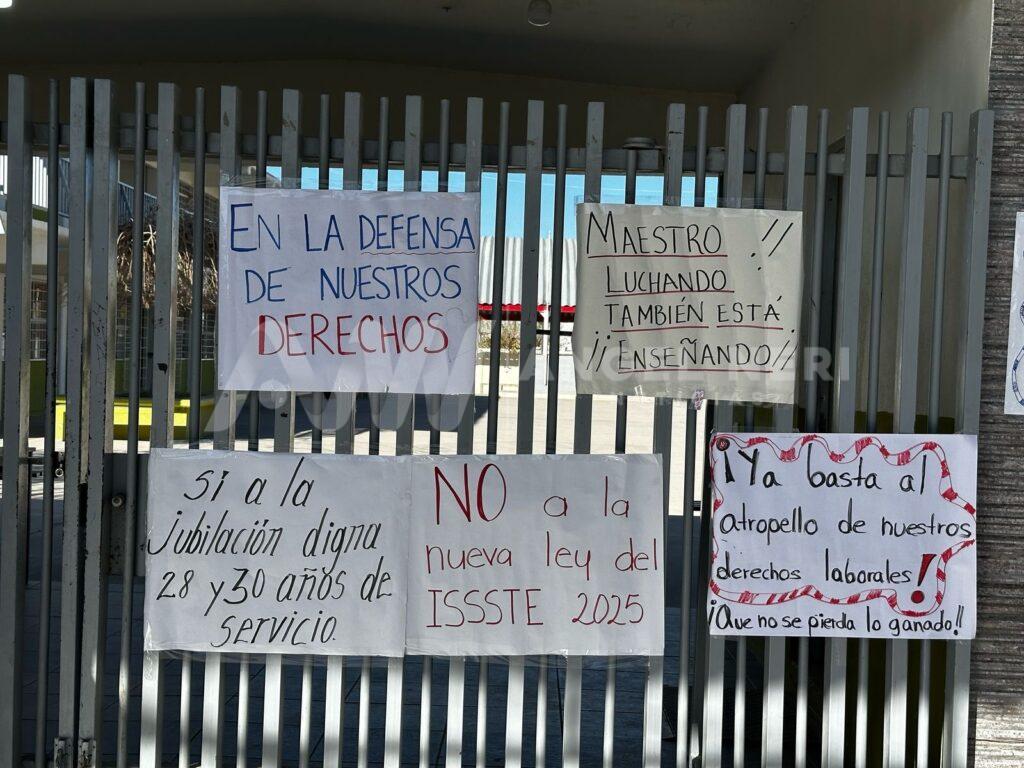 EN LA DEFENSA
DE NUESTROS
DERECHOS
MAESTRO !!
LUCHANDO
TAMBIÉN ESTÁ
¡¡ENSEÑANDO!!
Si a la
jubilación digna
28 y 30 años de
servicio.
NO a la
nueva ley del
ISSSTE 2025
¡Ya basta al
atropello de nuestros
derechos laborales!
¡Que no se pierda lo ganado!!